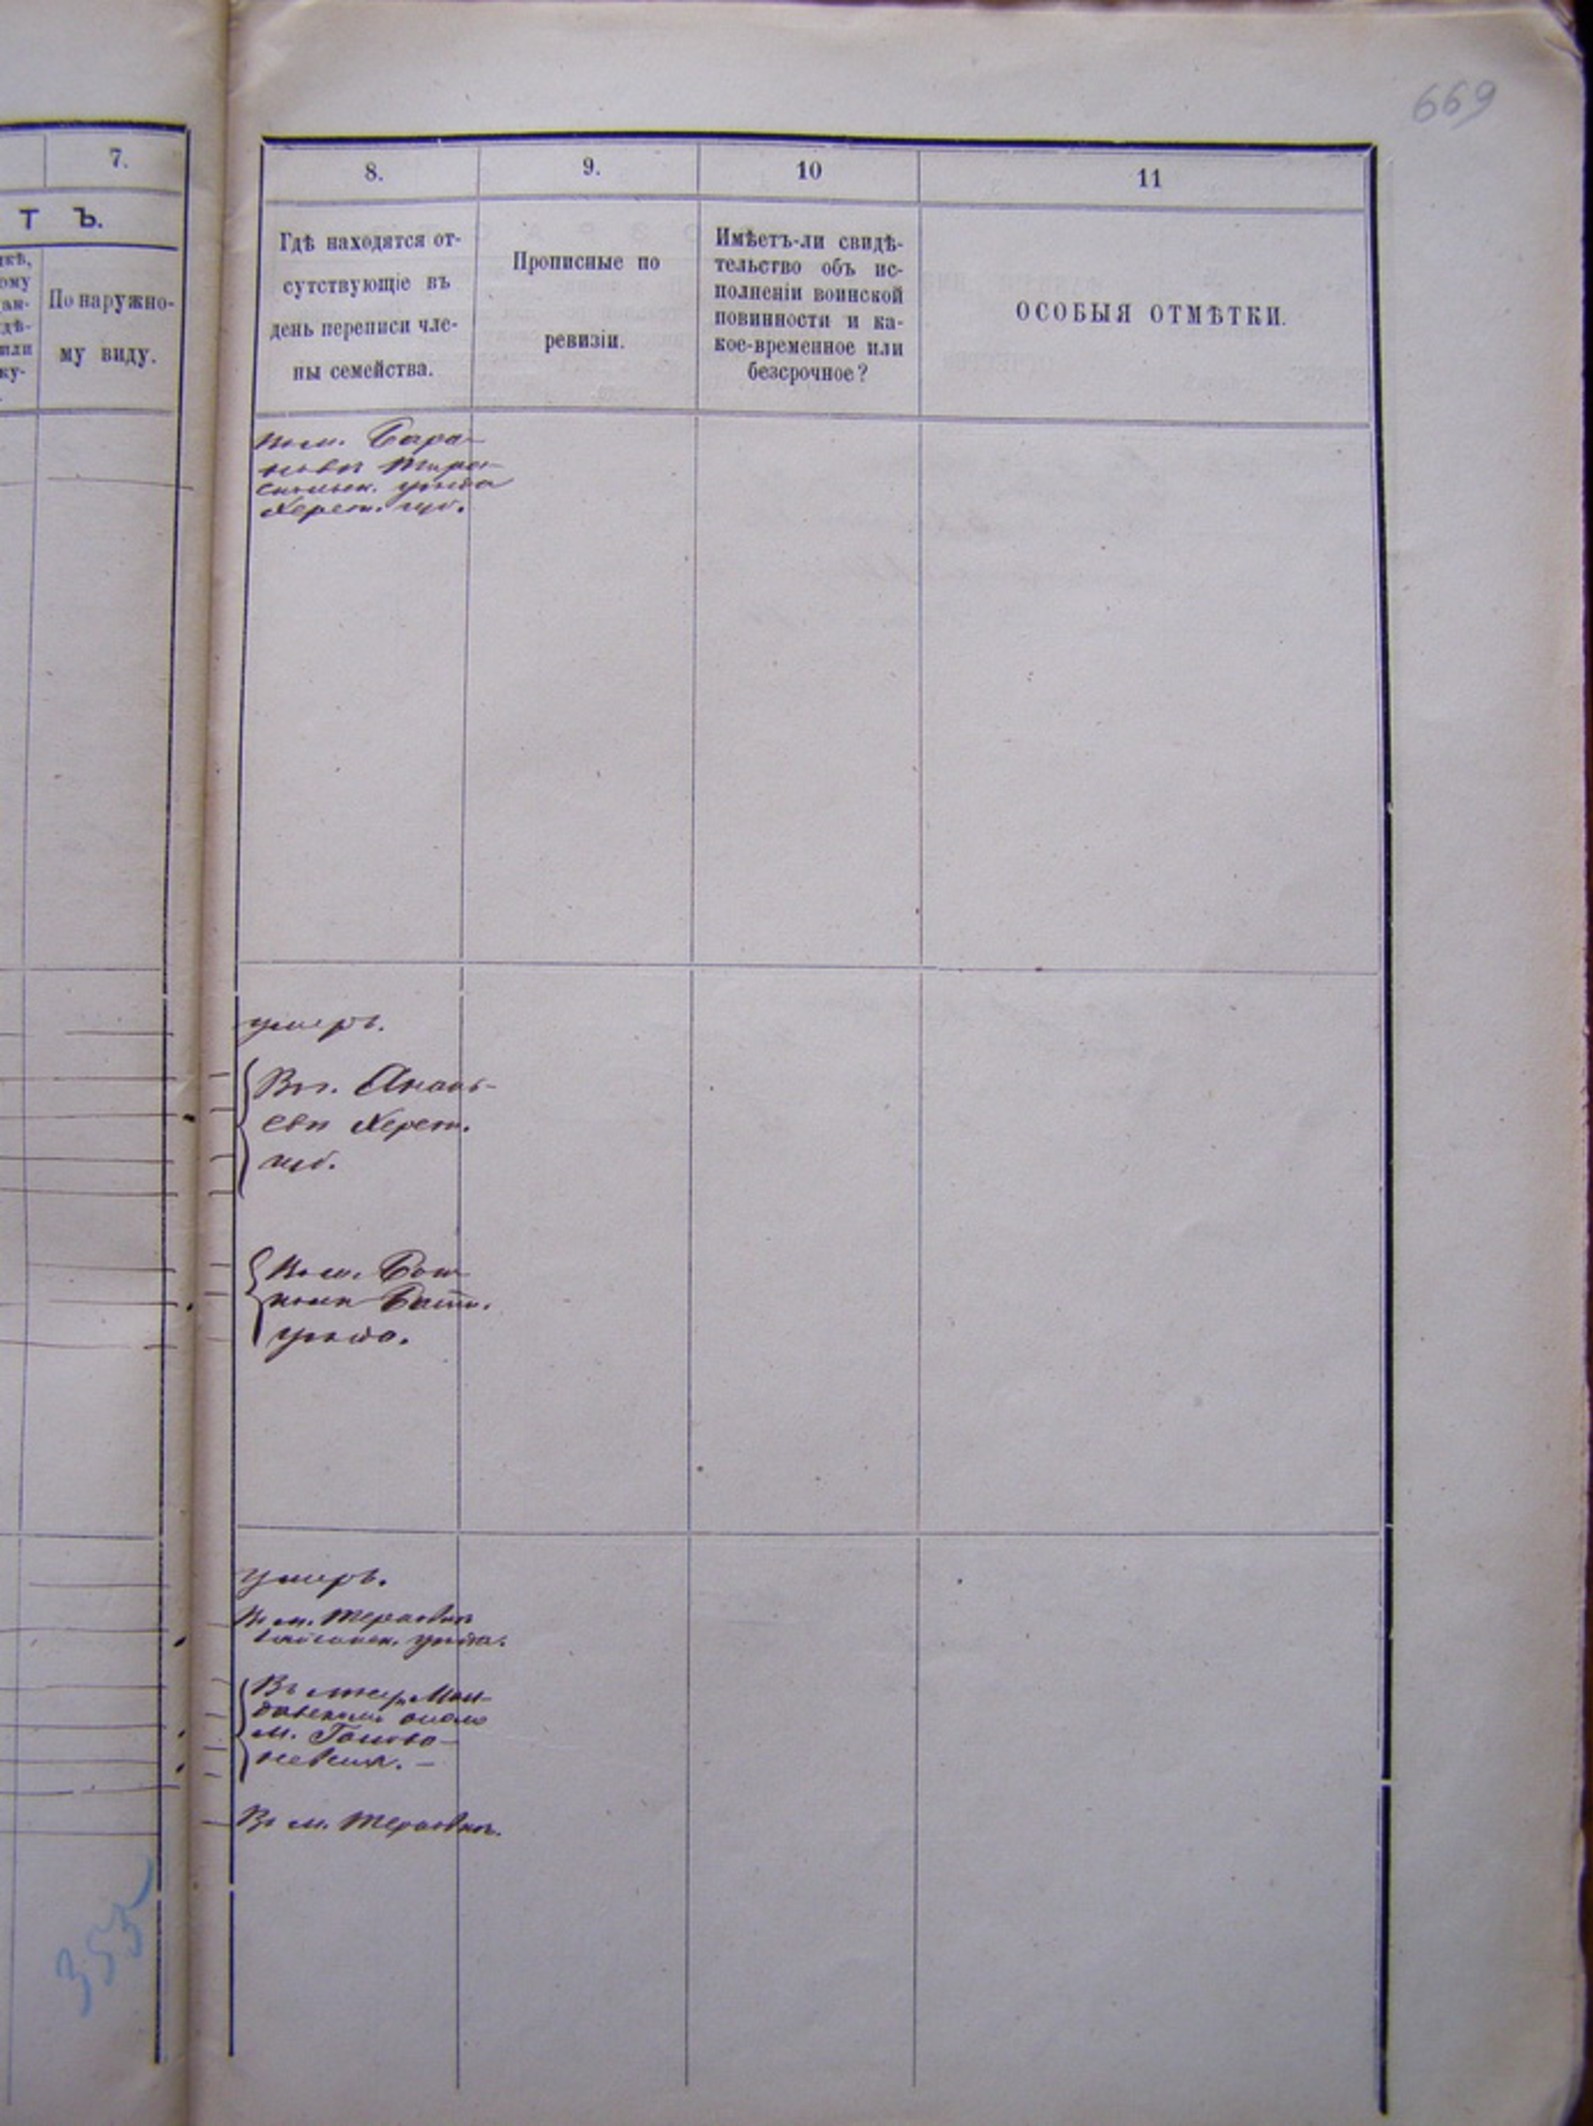 669
7.
Т Ъ.
По наружно-
му виду.
8.
9.
10
11
Гдѣ находятся от-
сутствующіе въ
день переписи чле-
ны семейства.
Прописные по
ревизіи.
Имѣетъ-ли свидѣ-
тельство объ ис-
полненіи воинской
повинности и ка-
кое-временное или
безсрочное?
ОСОБЫЯ ОТМѢТКИ.
Въ м. Бара-
новѣ Тирас-
польск. уѣзда
Херсон. губ.
умеръ.
Въ г. Анань-
евѣ Херсон.
губ.
Въ м.
Балт.
уѣзда.
умеръ.
Въ м. Терновкѣ
Гайсинск. уѣзда.
Въ
около
м. Голова-
невска. —
Въ м. Терновкѣ.
355